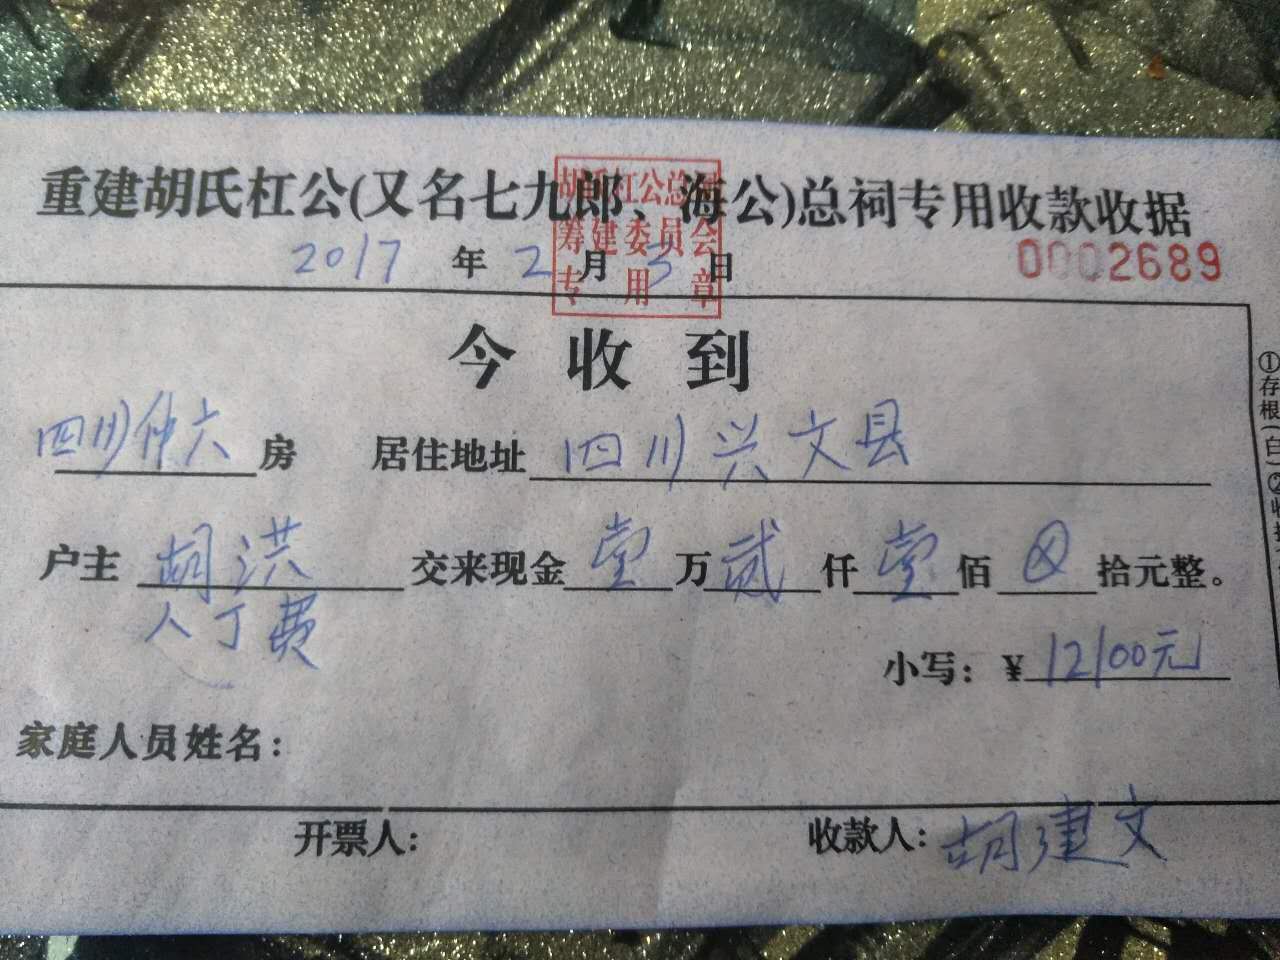 重建胡氏杠公(又名七九郎、海公)总祠专用收款收据
胡氏杠公总祠
筹建委员会
专用章
2017 年 2 月 3 日
0002689
今收到
四川仲六 房 居住地址 四川兴文县
户主 胡洪 交来现金 壹 万 贰 仟 壹 佰 ⊗ 拾元整。
人丁费
小写: ¥ 12100元
家庭人员姓名:
开票人: 收款人: 胡建文
①存根(白)②收